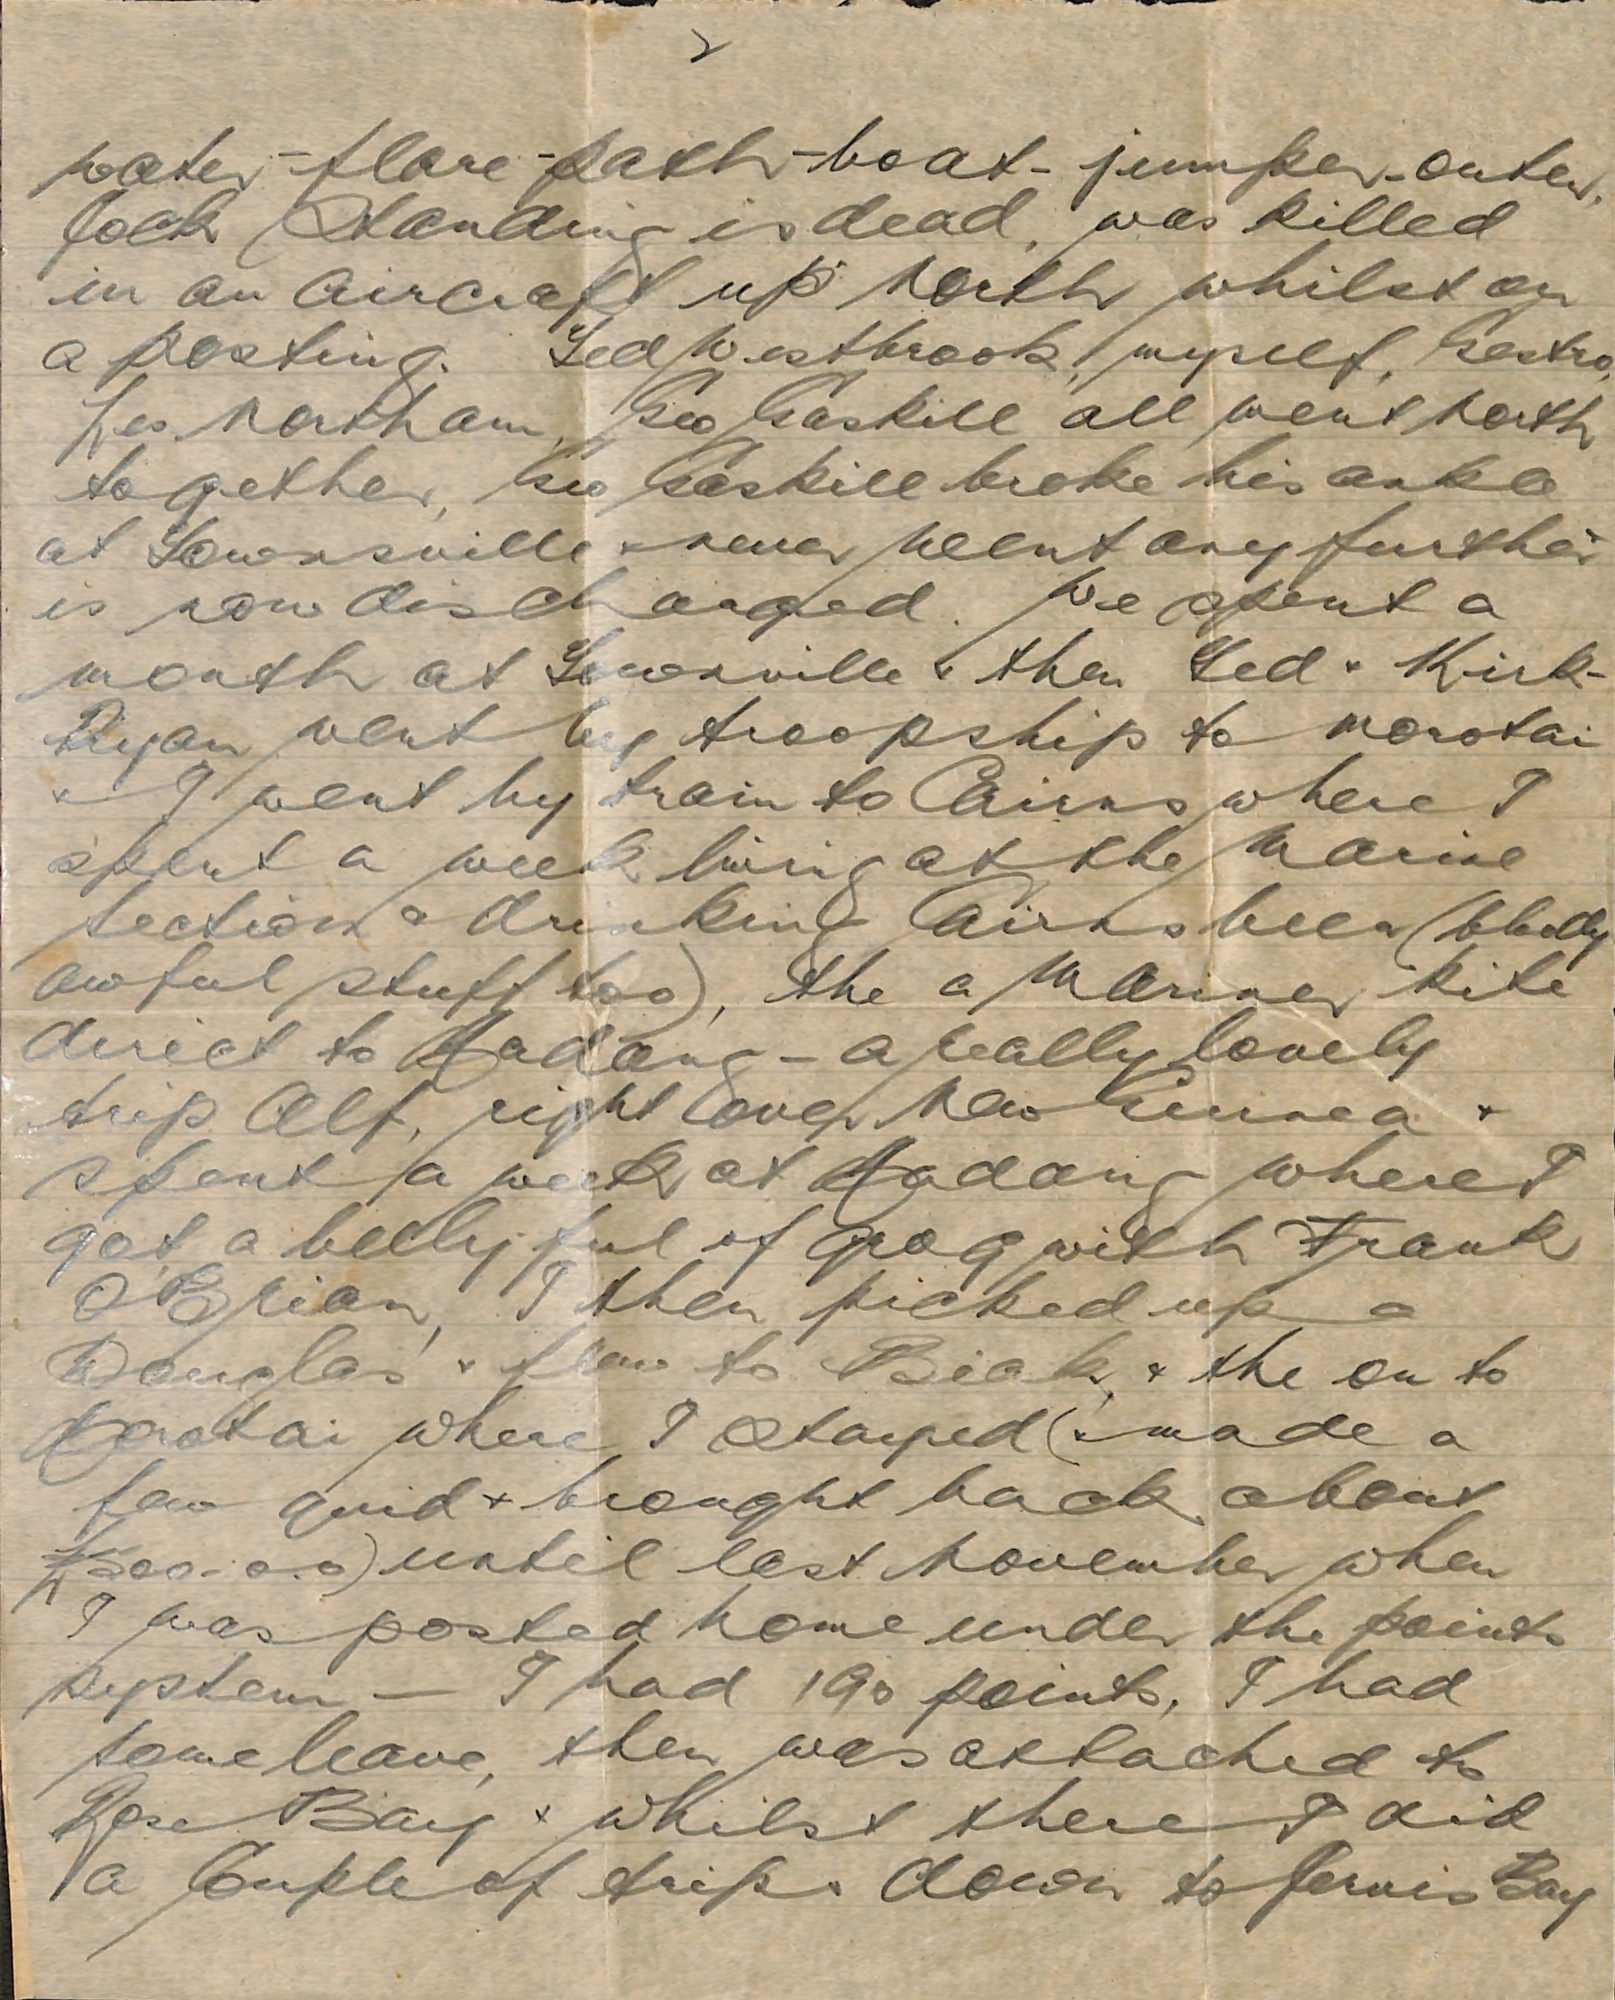 2
water-flare-path-boat-jumper-outer.
Jock Standing is dead, was killed
in an aircraft up North whilst on
a posting. Ted Westbrook, myself, Gastro,
Les Northam, Geo Gaskill all went North
together, Geo Gaskill broke his ankle
at Townsville & never went any further
is now discharged. We spent a
month at Townsville & then Ted & Kirk-
Ryan went by troopship to Morotai
& I went by train to Cairns where I
spent a week living at the Marine
Section & drinking Cairns beer (bloody
awful stuff too), the a Mariner kite
direct to Madang - a really lovely
trip Alf, right over New Guinea &
spent a week at Madang where I
got a belly ful of grog with Frank
O'Brian, I then picked up a
Douglas & flew to Biak, & the on to
Morotai where I stayed (& made a
few quid & brought back about
£300-0.0) until last November when
I was posted home under the points
system — I had 190 points, I had
some leave, then was attached to
Rose Bay & whilst there I did
a Couple of trips down to Jervis Bay